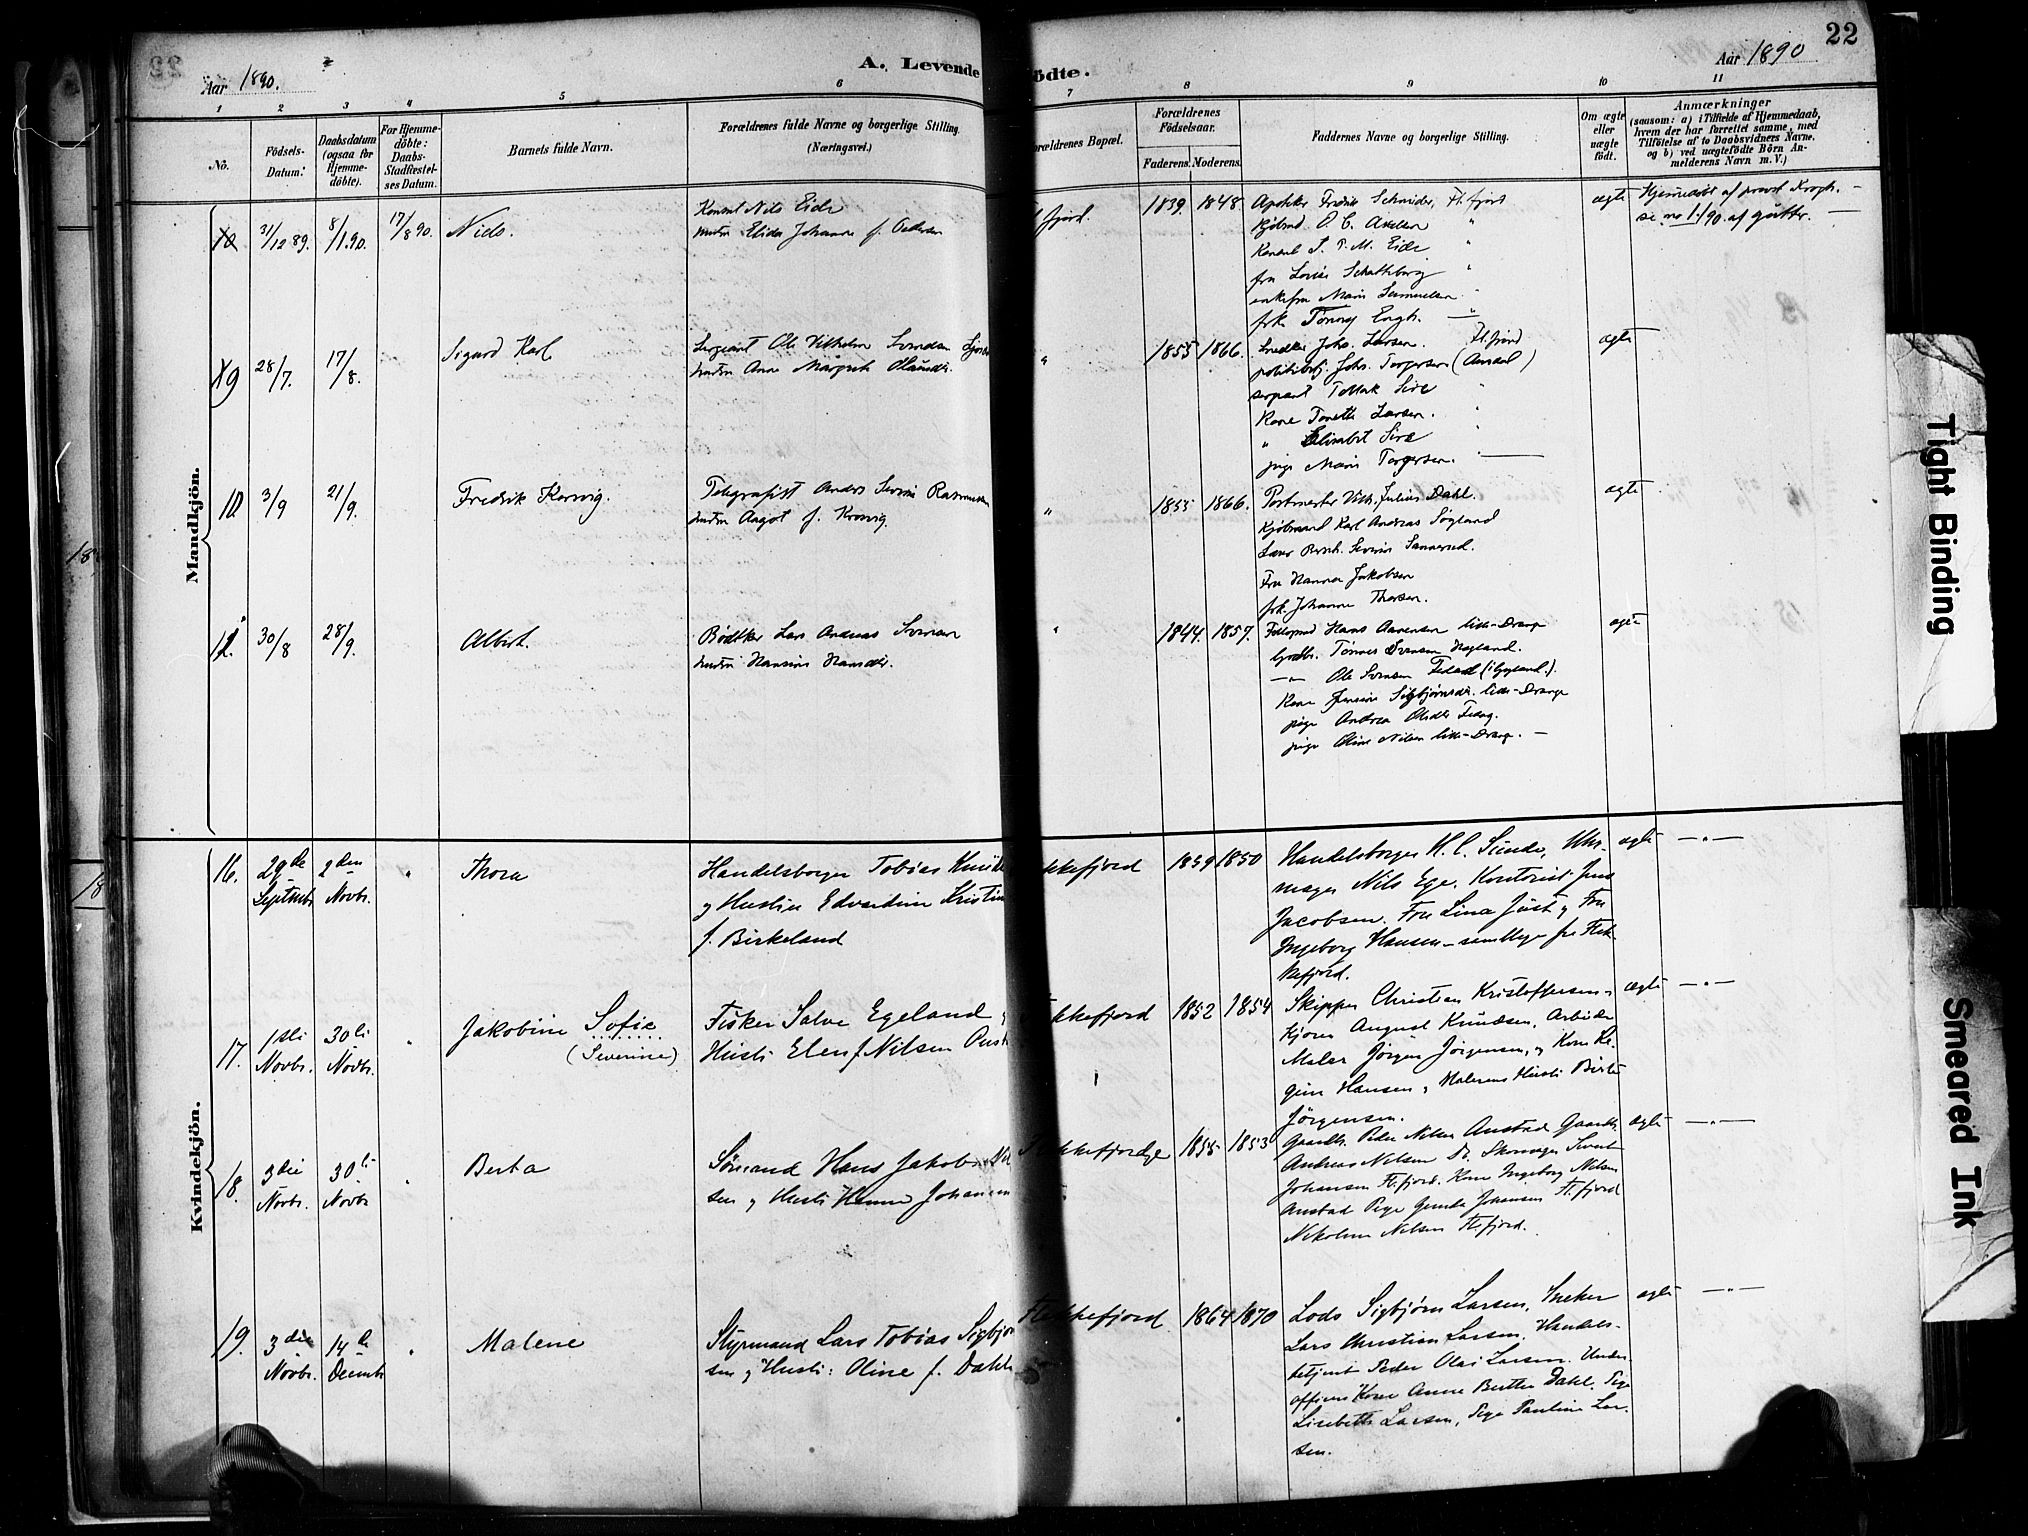 22
Aar 1890.
A. Levende
ödte.
Aar 1890
1 2 3 4 5 6 7 8 9 10 11
No.
Födsels-
Datum.
Daabsdatum
(ogsaa for
Hjemme-
döbte).
For Hjemme-
döbte:
Daabs-
Stadfæstel-
ses Datum.
Barnets fulde Navn.
Forældrenes fulde Navne og borgerlige Stilling.
(Næringsvei.)
orældrenes Bopæl.
Forældrenes
Födselsaar.
Faderens. Moderens.
Faddernes Navne og borgerlige Stilling.
Om ægte
eller
uægte
födt.
Anmærkninger
(saasom: a) i Tilfælde af Hjemmedaab,
hvem der har forrettet samme, med
Tilföielse af to Daabsvidners Navne,
og b) ved uægtefödte Börn An-
melderens Navn m. V.)
Mandkjön.
31/12 89. 8/1 90. 17/8 90. Nids.
Konsul Nils Eide
hustru Elida Johanne f.
fjord.
1839. 1848.
Apotheker Fredrik Schneider, Fl.fjord
Kjöbmd. O. C. Axelsen "
Konsul P. M. Eide "
fru Lovise "
enkefru Marie Samuelsen "
frk. Tönny Engh. —
ægte
Hjemmedöbt af provst Krogh. —
se no 1/90 af gutter. —
19 28/7. 17/8. Sigurd Karl
Sergeant Ole Vilhelm Svendsen
hustru Anne Margrete
"
1855 1866.
Snedker Johs. Larsen. Fl.fjord
politibetj. Johs. Torgersen (Arendal)
sergeant Tollak Sire "
Kone Tonette Larsen. "
" Elisabet Sire "
pige Marie Torgersen. —
ægte
10. 3/9 21/9. Fredrik Korsvig.
Telegrafist Anders Severin Rasmussen
hustru Aagot f. Krosvig.
"
1855 1866.
Postmester Vilh. Julius Dahl.
Kjöbmand Karl Andreas Söyland
Severin Sannerud.
Fru Hanna Jakobsen
frk. Johanne Thorsen.
ægte
12. 30/8 28/9. Albert.
Bödtker Lars Andreas Svensen
hustru Hansine Hansdtr.
"
1844. 1857.
Hans Aanensen lille-Drange
Tönnes Svensen Hogland.
—"— Ole Svensen (i Gyland.).
Kone Jensine Sigbjörnsdtr. lille-Drange
pige Andrea Olsdtr
pige Oline Nilsen lille-Drange. —
ægte
Kvindekjön.
16. 29de Septembr. 2den Novbr. " Thora
Handelsborger Tobias Knud
og Hustru Edvardine Kristin
f. Birkeland
kkefjord
1859 1850
Handelsborger H. C. Sunde, Uhr-
mager Nils Ege. Kontorist Jens
Jacobsen. Fru Lina Just og Fru
Ingeborg Hansen – samtlige fra Flek-
kefjord.
ægte —"—
17. 1ste Novbr. 30te Novbr. " Jakobine Sofie
(Severine)
Fisker Salve Egeland
Hustru Elen f. Nilsen
kkefjord
1852 1854
Skipper Christian Kristoffersen,
Kjörer August Knudsen, Arbeider
Maler Jörgen Jörgensen, og Kone Re-
gine Hansen og Malerens Hustru Birte
Jörgensen.
ægte —"—
18. 3die Novbr. 30te Novbr. " Berta
Sömand Hans Jakob Niel
sen og Hustru Hanne Johannes
kkefjord
1855 1853
Gaardbr. Peder Nilsen Anstad Gaardbr.
Andreas Nilsen Skomager Sivert
Johansen Fl.fjord. Kone Ingeborg Nilsen
Anstad Pige Gunda Johansen Fl.fjord
Nikoline Nilsen Fl.fjord.
ægte —"—
19. 3die Novbr. 14de Decembr. " Malene
Styrmand Lars Tobias Sigbjörn
sen og Hustru: Oline f. Dahl
Flekkefjord
1864 1870
Lods Sigbjörn Larsen, Sneker
Lars Christian Larsen, Handels-
betjent Peder Olai Larsen. Under-
officers Kone Anne Berthe Dahl. Pige
Lisebeth Larsen, Pige Pauline Lar-
sen.
ægte —"—
Tight Binding
Smeared Ink